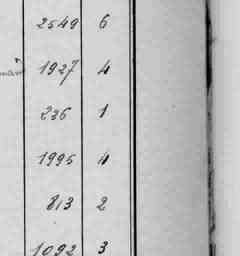 2549 6
1927 4
236 1
1995 4
813 2
1092 3